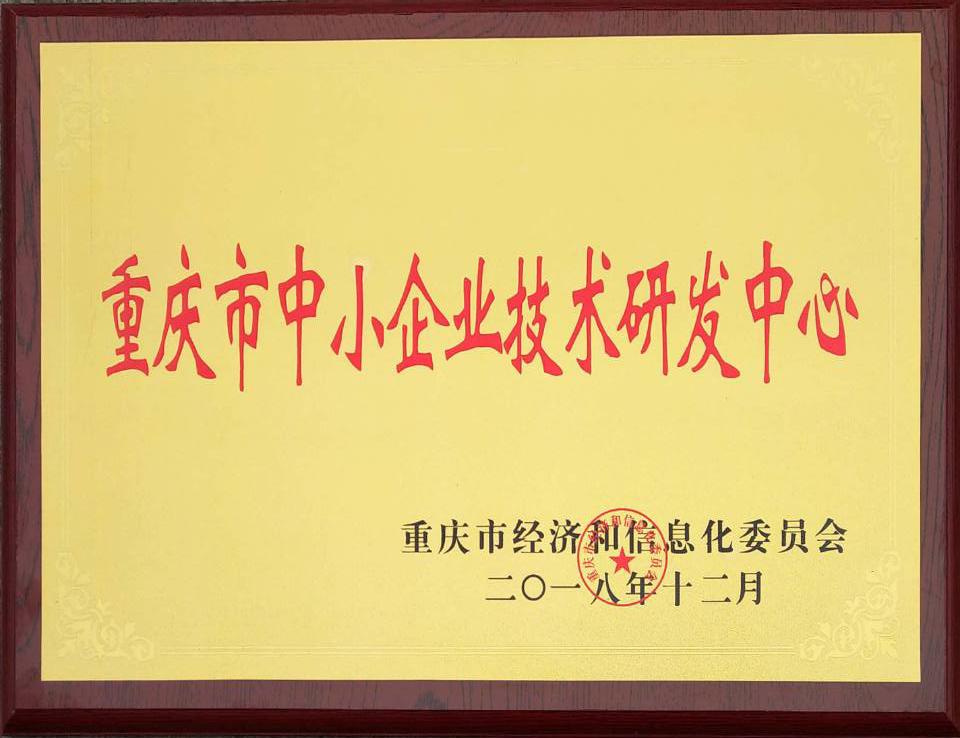 重庆市中小企业技术研发中心
重庆市经济和信息化委员会
二〇一八年十二月
重庆市经济和信息化委员会